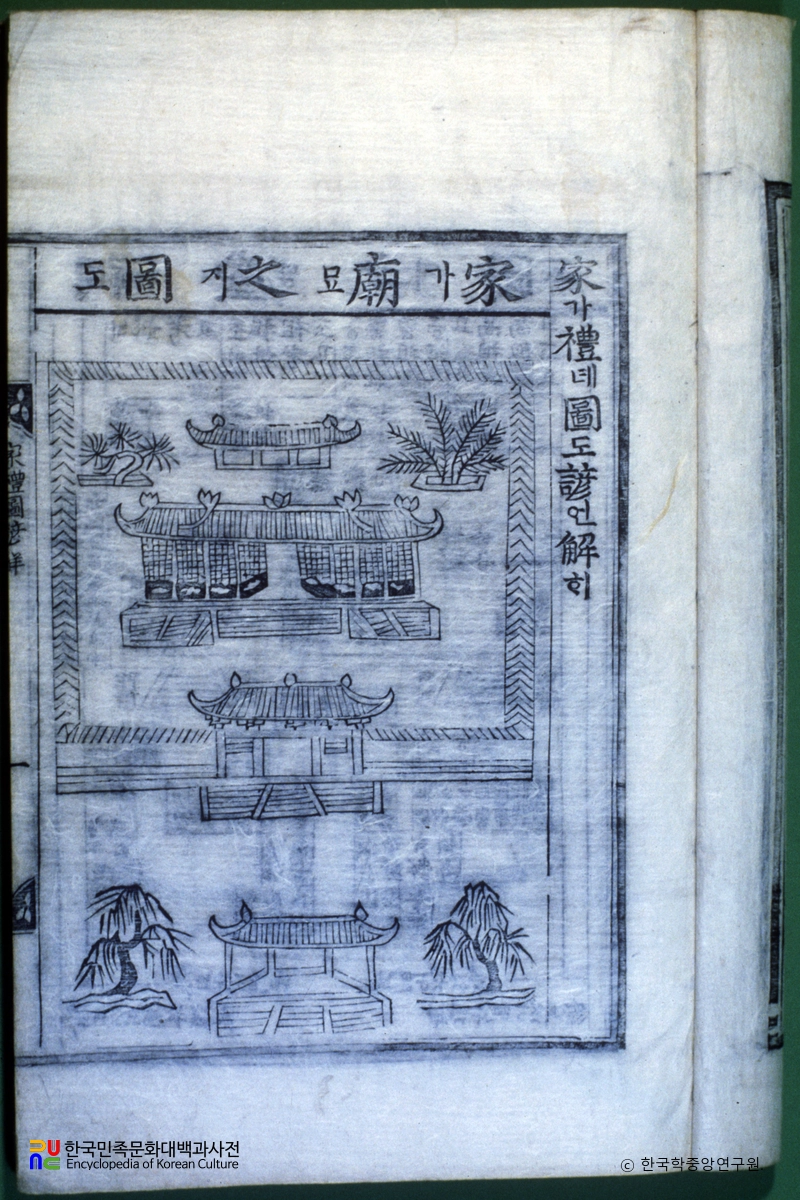 家가禮녜圖도諺언解ᄒᆡ
家가廟묘之지圖도
家禮圖諺解
一
한국민족문화대백과사전
Encyclopedia of Korean Culture
© 한국학중앙연구원